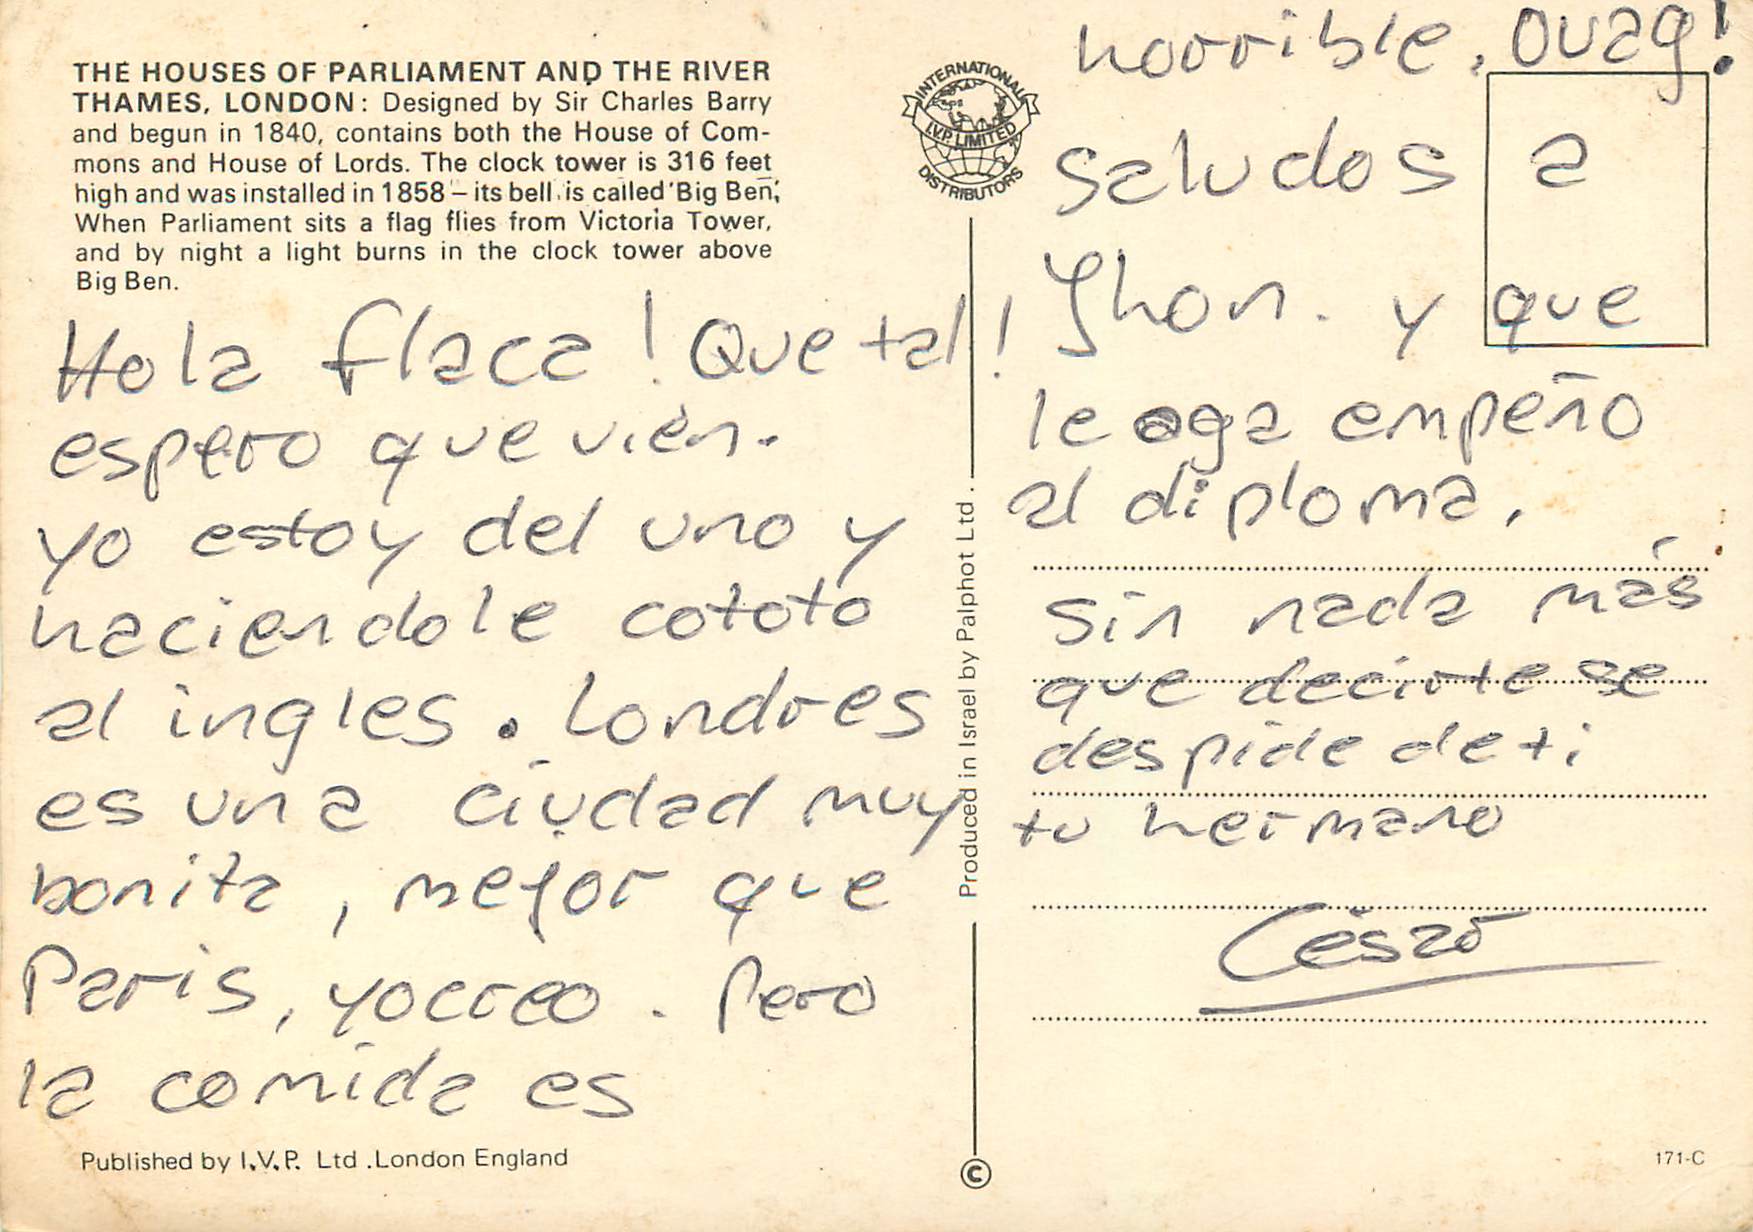 THE HOUSES OF PARLIAMENT AND THE RIVER
THAMES, LONDON: Designed by Sir Charles Barry
and begun in 1840, contains both the House of Com-
mons and House of Lords. The clock tower is 316 feet
high and was installed in 1858 – its bell is called 'Big Ben'.
When Parliament sits a flag flies from Victoria Tower,
and by night a light burns in the clock tower above
Big Ben.
Hola flaca! Que tal!
espero que vien.
yo estoy del uno y
haciendole cototo
al ingles. Londres
es una ciudad muy
bonita, mejor que
Paris, yo creo. Pero
la comida es
Published by I.V.P. Ltd. London England
INTERNATIONAL
I.V.P. LIMITED
DISTRIBUTORS
Produced in Israel by Palphot Ltd.
©
horrible. Ouag!
saludos a
Jhon. y que
le oga empeño
al diploma.
Sin nada más
que decirte se
despide de ti
tu hermano
César
171-C